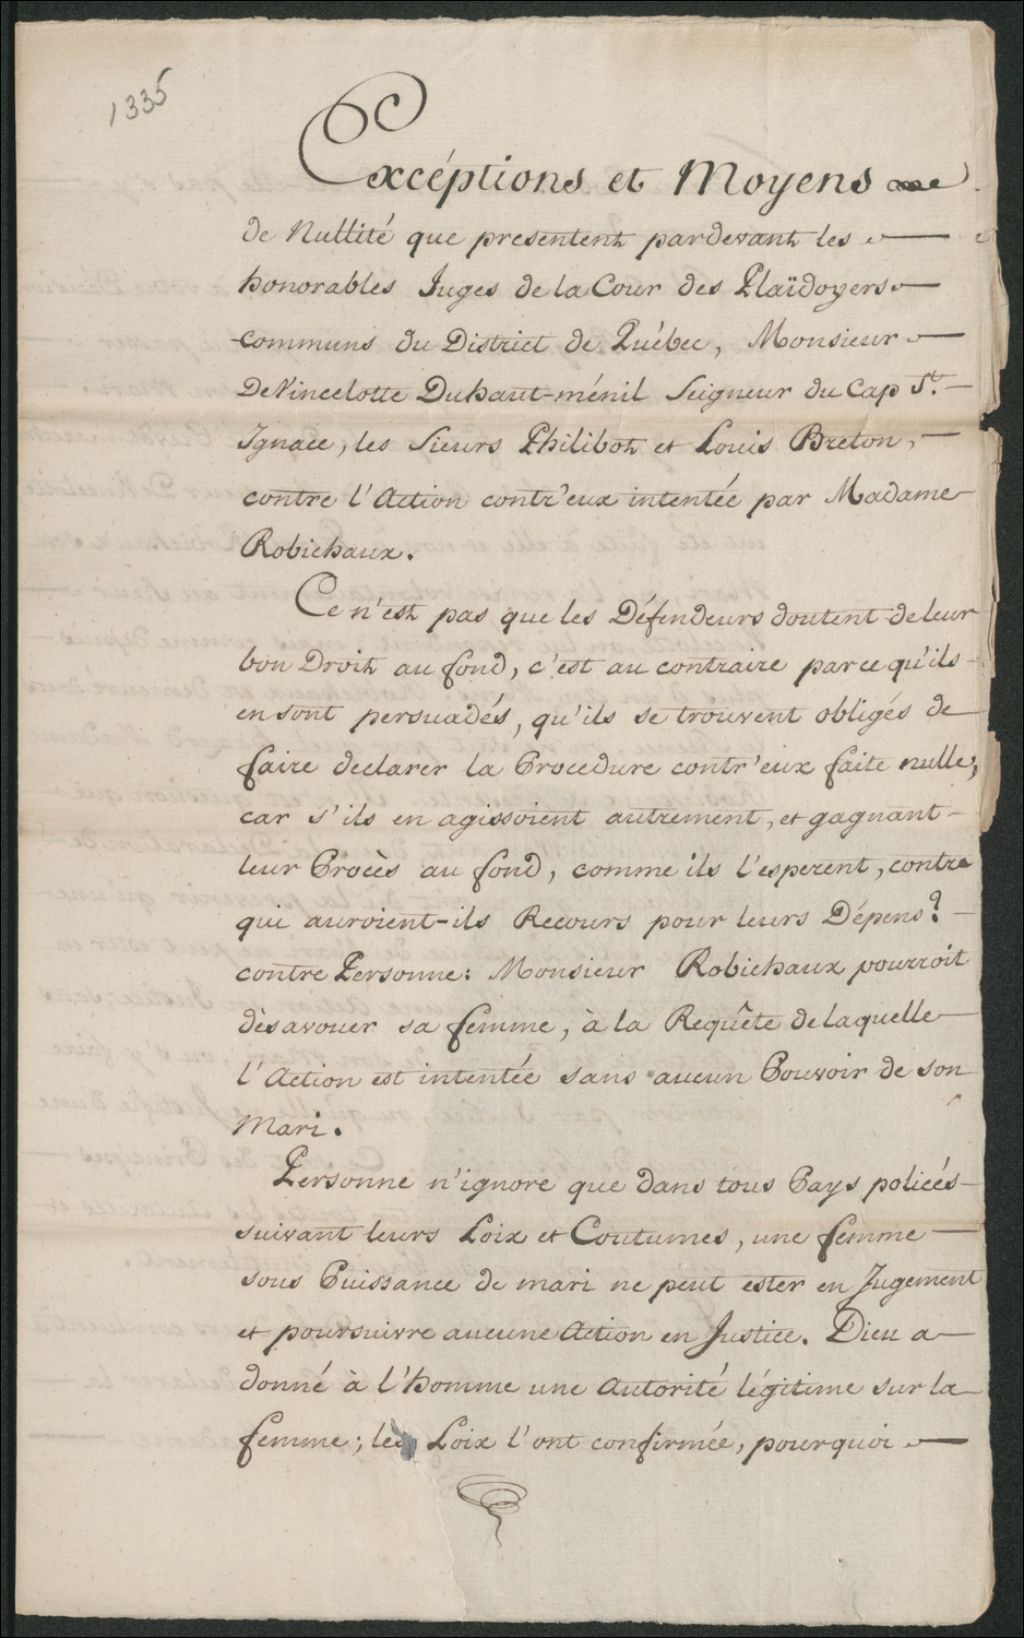 1335
Excéptions et Moyens
de Nullité que presentent pardevant les
honorables Juges de la Cour des Plaïdoyers
communs du District de Québec, Monsieur
DeVincelotte Duhaut-ménil Seigneur du Cap St.
Ignace, les Sieurs Philibot et Louis Breton,
contre l'Action contr'eux intentée par Madame
Robichaux.
Ce n'est pas que les Défendeurs doutent de leur
bon Droit au fond, c'est au contraire parce qu'ils
en sont persuadés, qu'ils se trouvent obligés de
faire declarer la Procedure contr'eux faite nulle,
car s'ils en agissoient autrement, et gagnant
leur Procès au fond, comme ils l'esperent, contre
qui auroient-ils Recours pour leurs Dépens?
contre Personne: Monsieur Robichaux pourroit
dèsavouer sa femme, à la Requête de laquelle
l'Action est intentée sans aucun Pouvoir de son
Mari.
Personne n'ignore que dans tous Pays policés
suivant leurs Loix et Coutumes, une femme
sous Puissance de mari ne peut ester en Jugement
et poursuivre aucune Action en Justice. Dieu a
donné à l'homme une Autorité légitime sur la
femme; les Loix l'ont confirmée, pourquoi